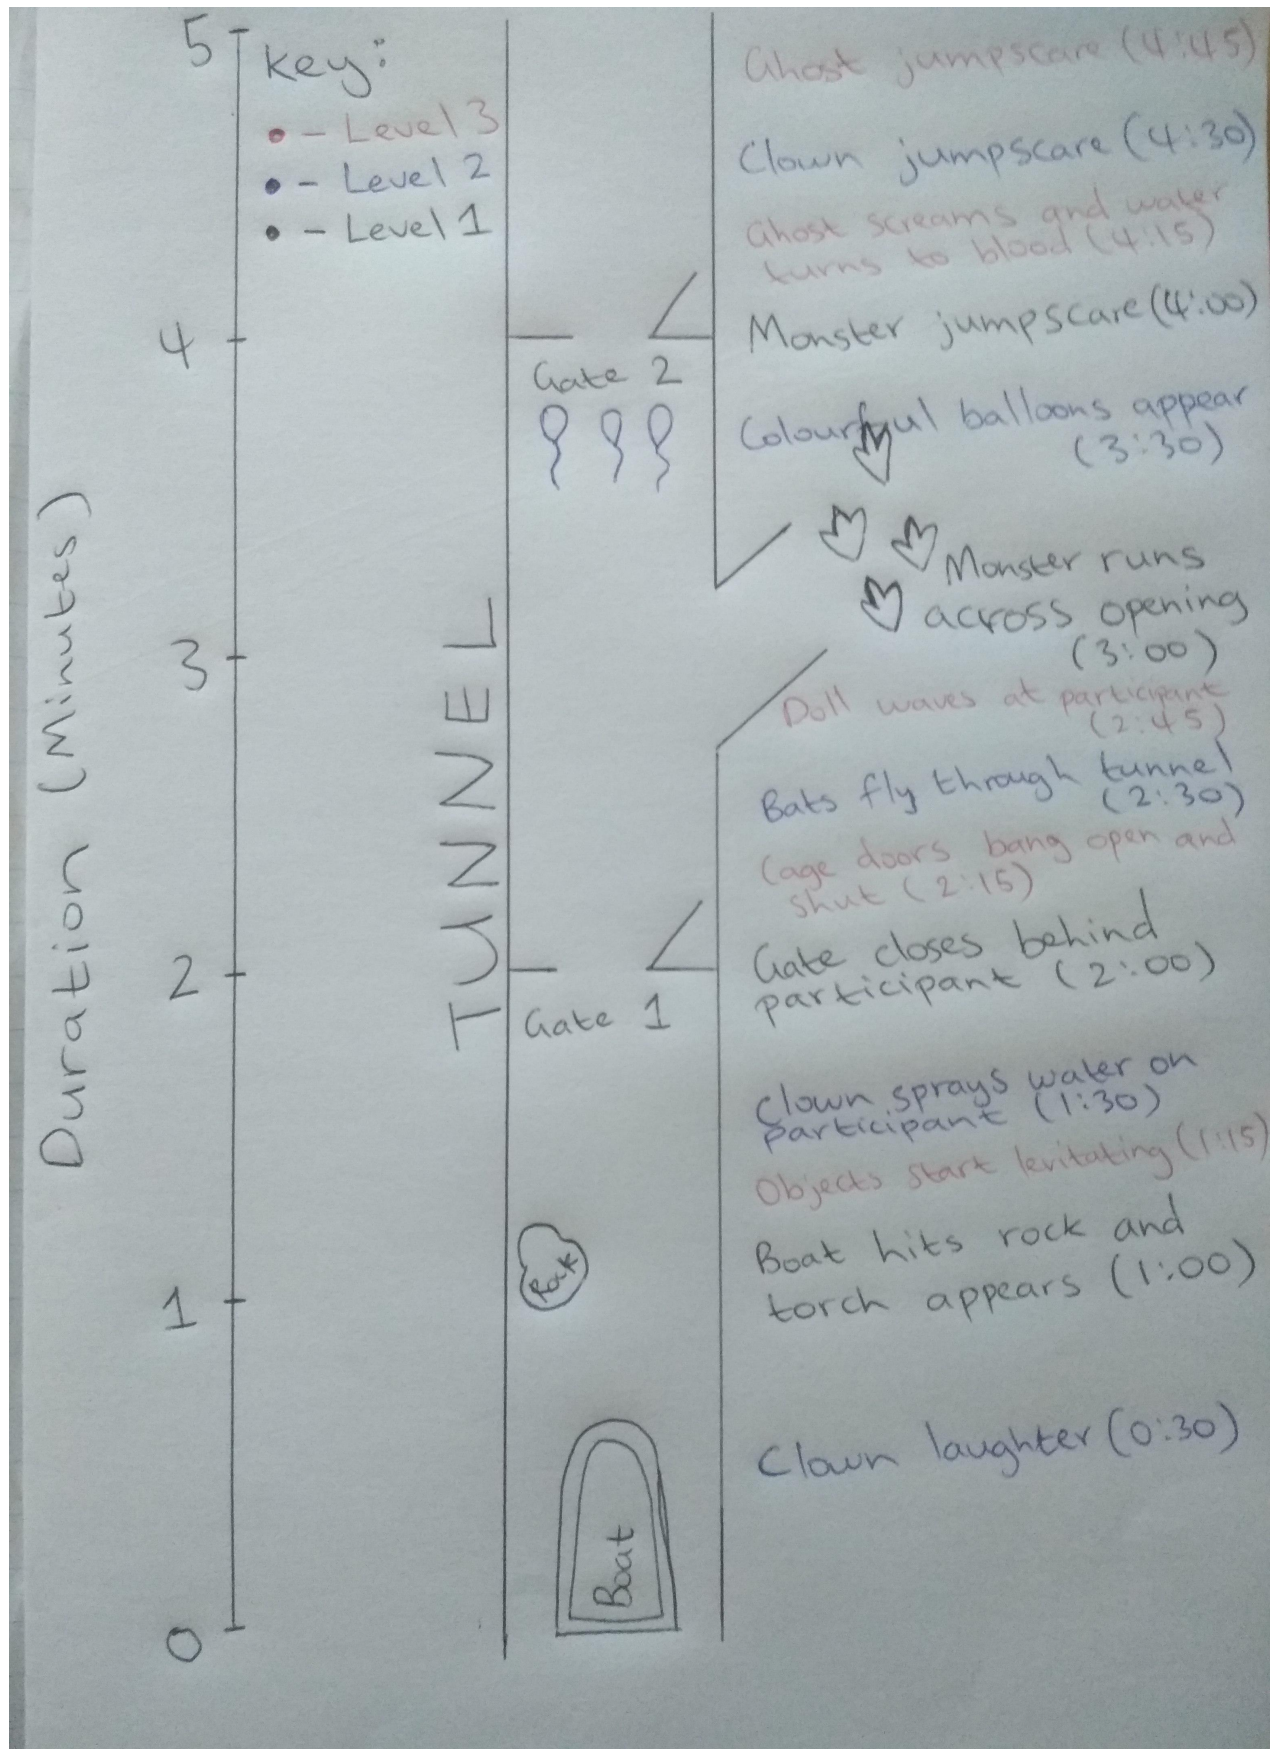 Duration (Minutes)
5
4
3
2
1
0
Key:
• - Level 3
• - Level 2
• - Level 1
TUNNEL
Gate 2
Gate 1
Rock
Boat
Ghost jumpscare (4:45)
Clown jumpscare (4:30)
Ghost screams and water
turns to blood (4:15)
Monster jumpscare (4:00)
Colourful balloons appear
(3:30)
Monster runs
across opening
(3:00)
Doll waves at participant
(2:45)
Bats fly through tunnel
(2:30)
Cage doors bang open and
shut (2:15)
Gate closes behind
participant (2:00)
Clown sprays water on
participant (1:30)
Objects start levitating (1:15)
Boat hits rock and
torch appears (1:00)
Clown laughter (0:30)